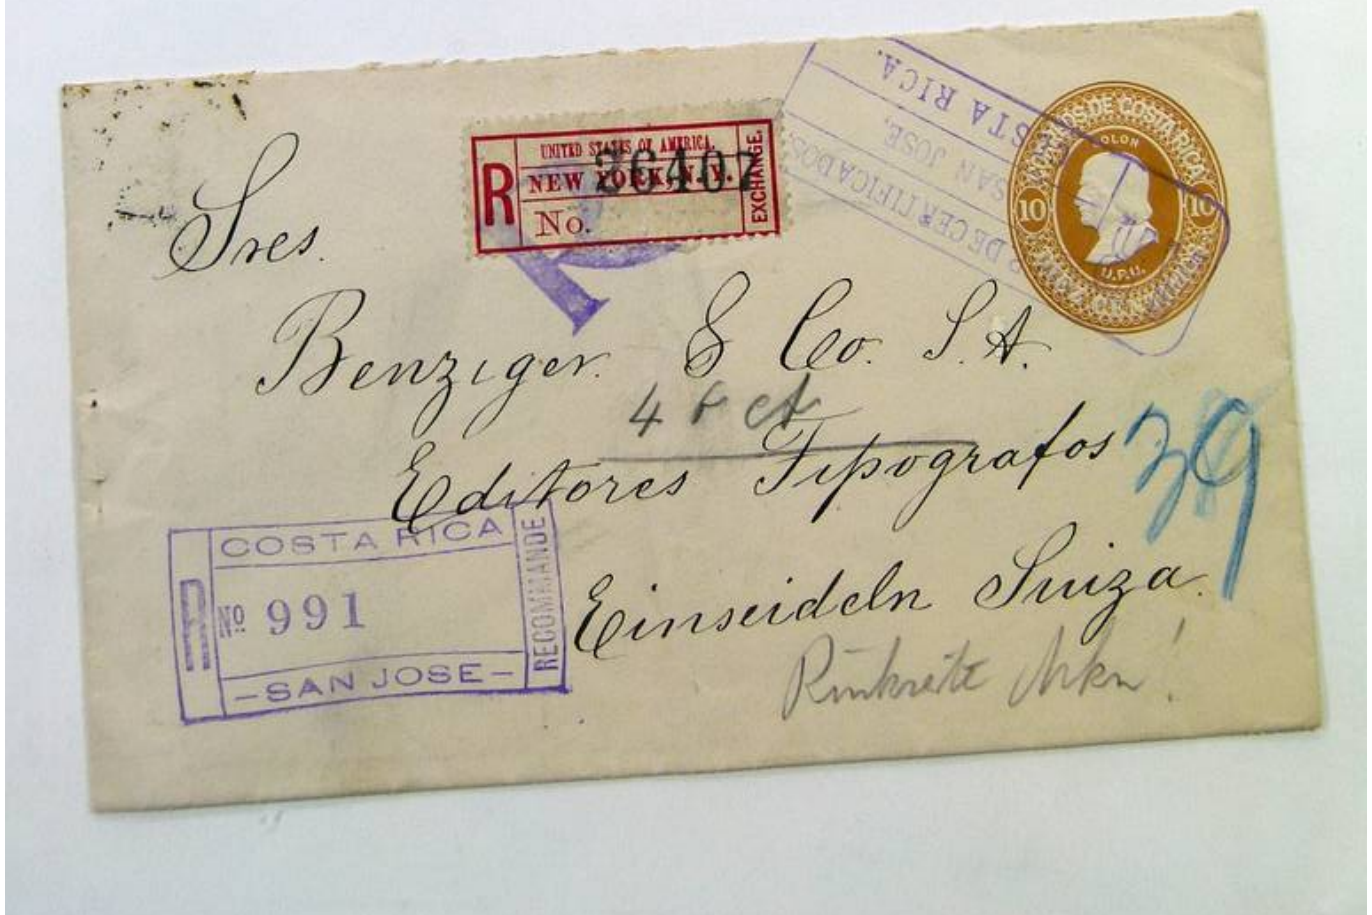 UNITED STATES OF AMERICA.
R
NEW YORK, N.Y.
36407
No.
EXCHANGE.
DE CERTIFICADOS
SAN JOSE,
COSTA RICA.
DE COSTA RICA
COLON
10
10
U.P.U.
Sres.
Benziger & Co. S.A.
4 ct
Editores Tipografos
39
Einseideln Suiza.
COSTA RICA
R
Nº 991
RECOMMANDE
-SAN JOSE-